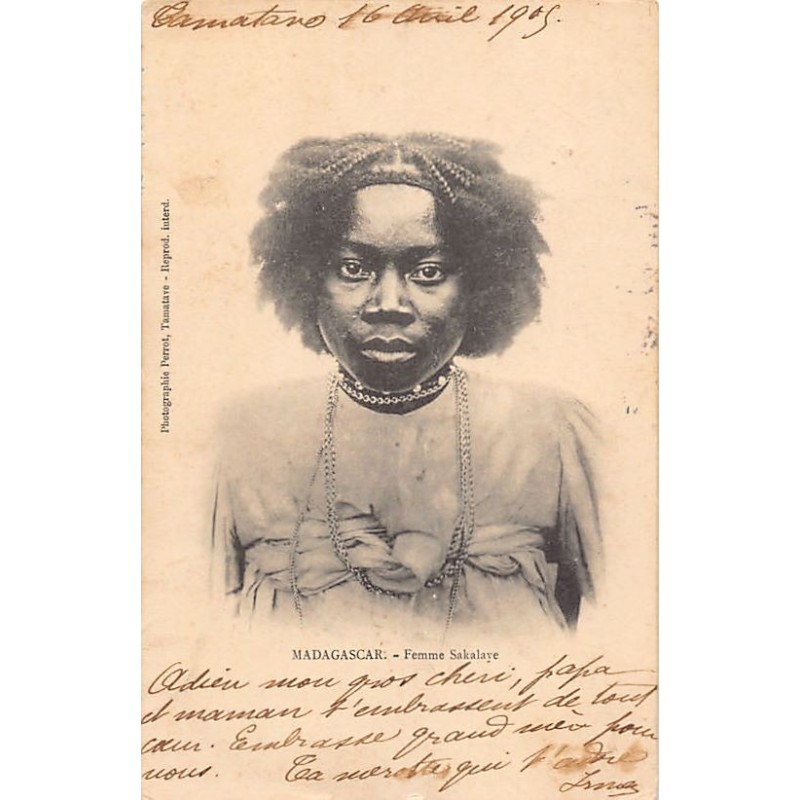 Tamatave 16 Avril 1905.
Photographie Perrot, Tamatave - Reprod. interd.
MADAGASCAR. - Femme Sakalave
Adieu mon gros cheri, papa
et maman t'embrassent de tout
cœur. Embrasse grand mèr pour
nous. Ta qui t'adore
Irma